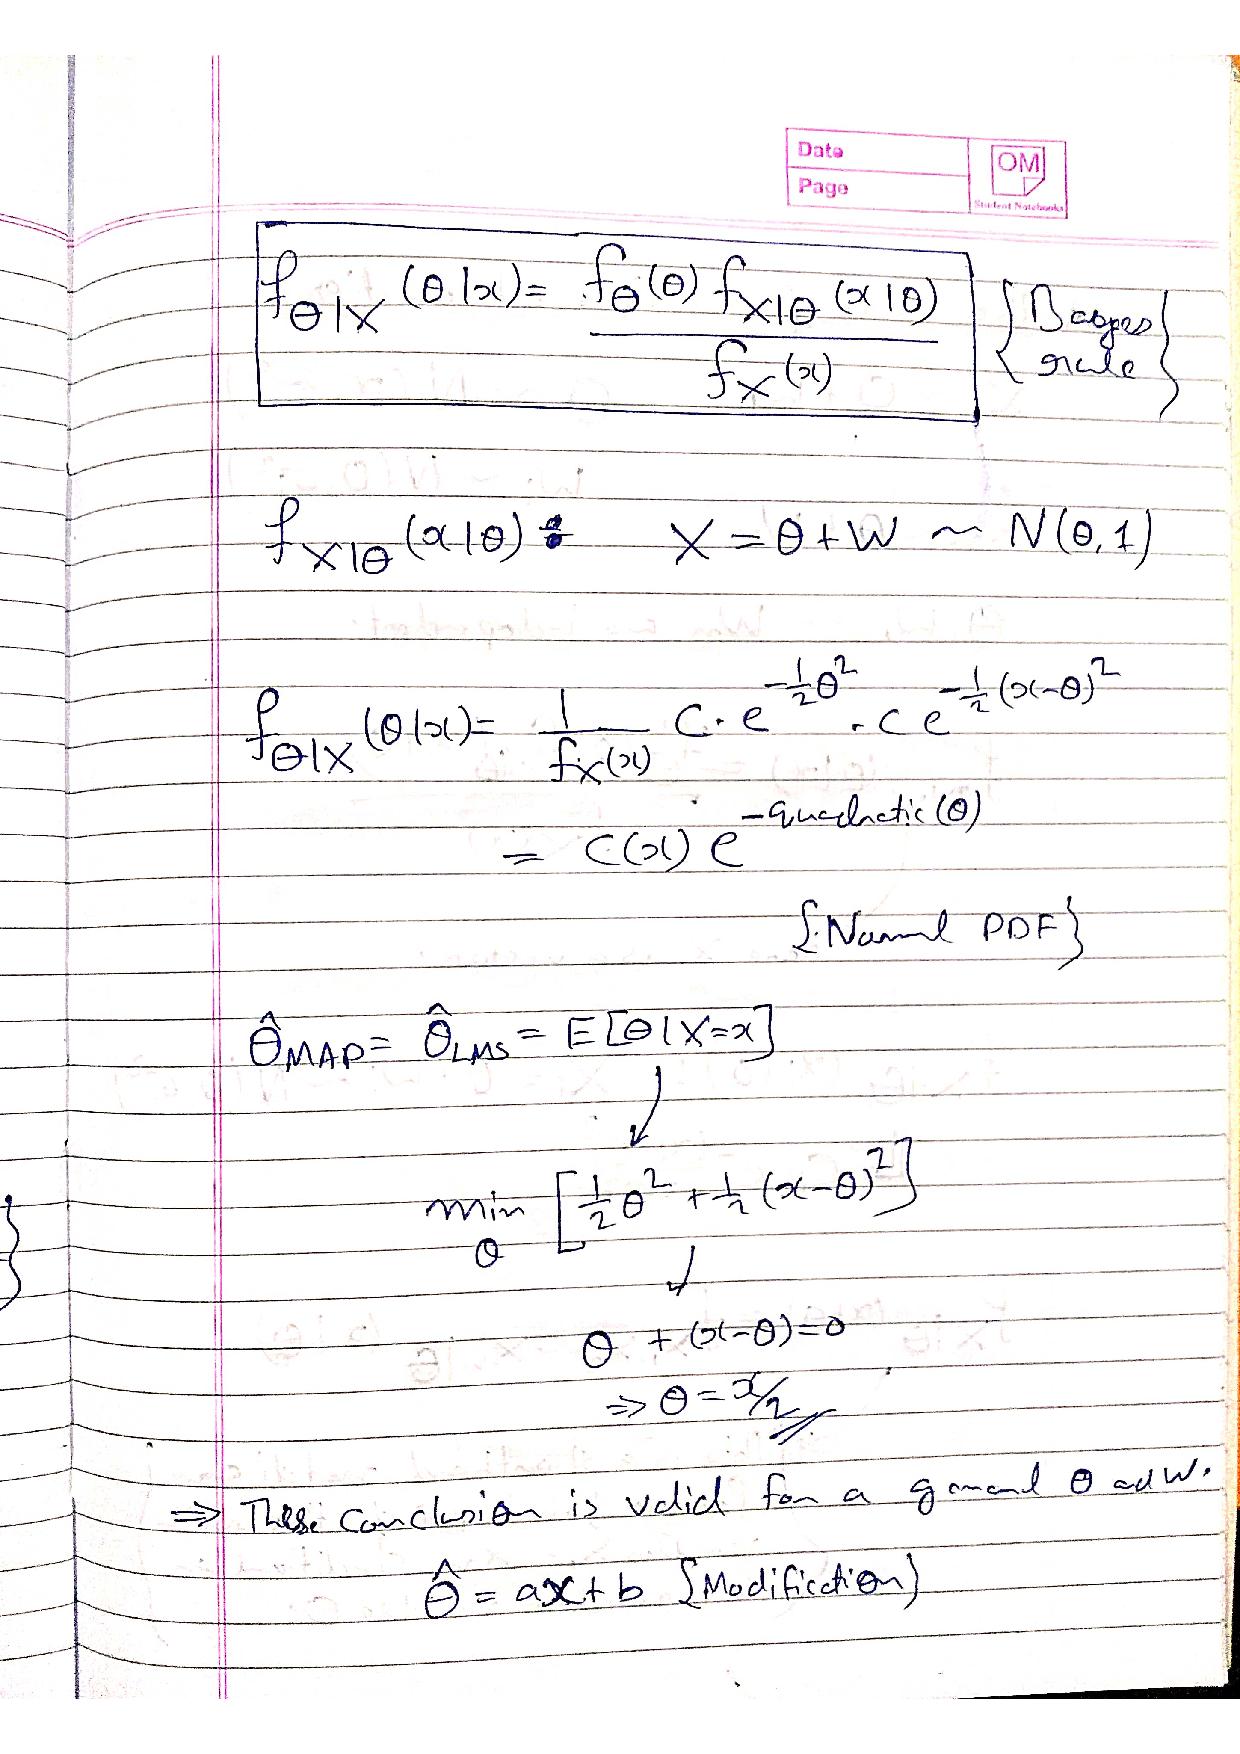 Date
Page
OM
Student Notebooks
f_{Θ|X}(θ|x) = f_Θ(θ) f_{X|Θ}(x|θ) / f_X(x) {Bayes rule}
f_{X|Θ}(x|θ): X = θ + W ~ N(θ, 1)
f_{Θ|X}(θ|x) = 1/f_X(x) C · e^{-1/2 θ²} · c e^{-1/2 (x-θ)²}
= C(x) e^{-quadratic(θ)}
{Normal PDF}
θ̂_MAP = θ̂_LMS = E[Θ|X=x]
↓
min_θ [1/2 θ² + 1/2 (x-θ)²]
↓
θ + (x-θ) = 0
⇒ θ = x/2
⇒ These conclusion is valid for a general Θ ad W.
θ̂ = ax + b {Modification}